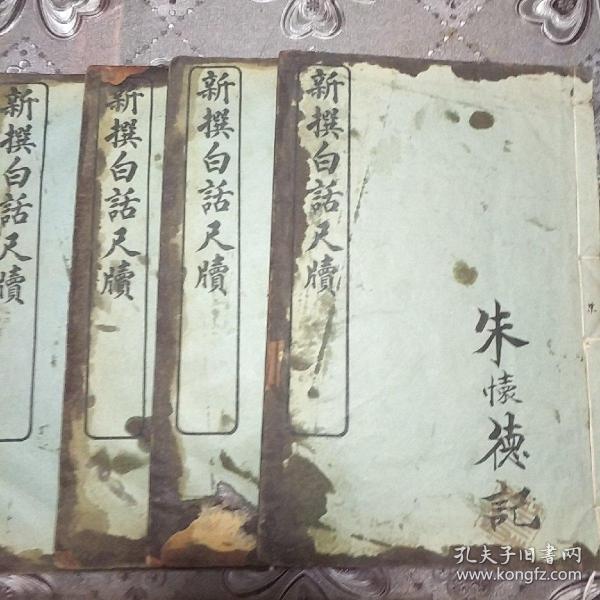 新撰白話尺牘
新撰白話尺牘
新撰白話尺牘
新撰白話尺牘
朱懷德記
朱
孔夫子旧书网
www.kongfz.com